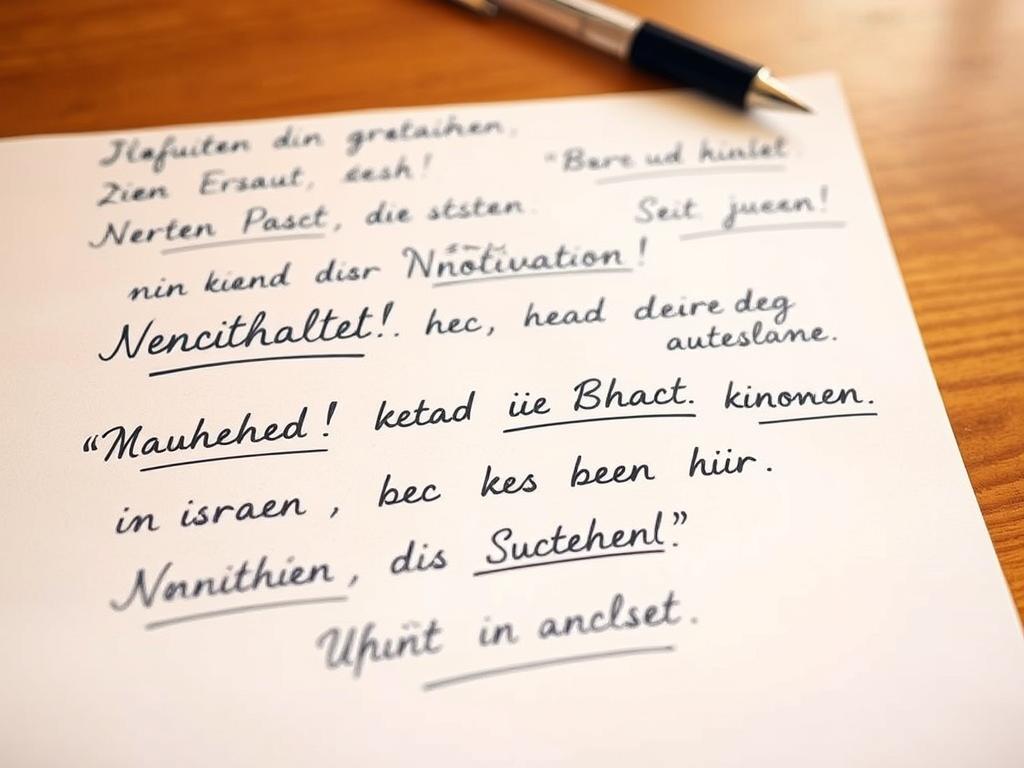 Jlafuiten din gretaihen,
Zien Ersaut, eesh!
"Bere ud hinlet.
Nerten Pasct, die ststen.
Seit jueen!
nin kiend disr Nnotivation!
Nencithaltet!. hec, head deire deg
auteslane.
"Mauhehed! ketad üe Bhact. kinonen.
in israen, bec kes been hüir.
Nnnithien, dis Suctehenl."
in anclset.